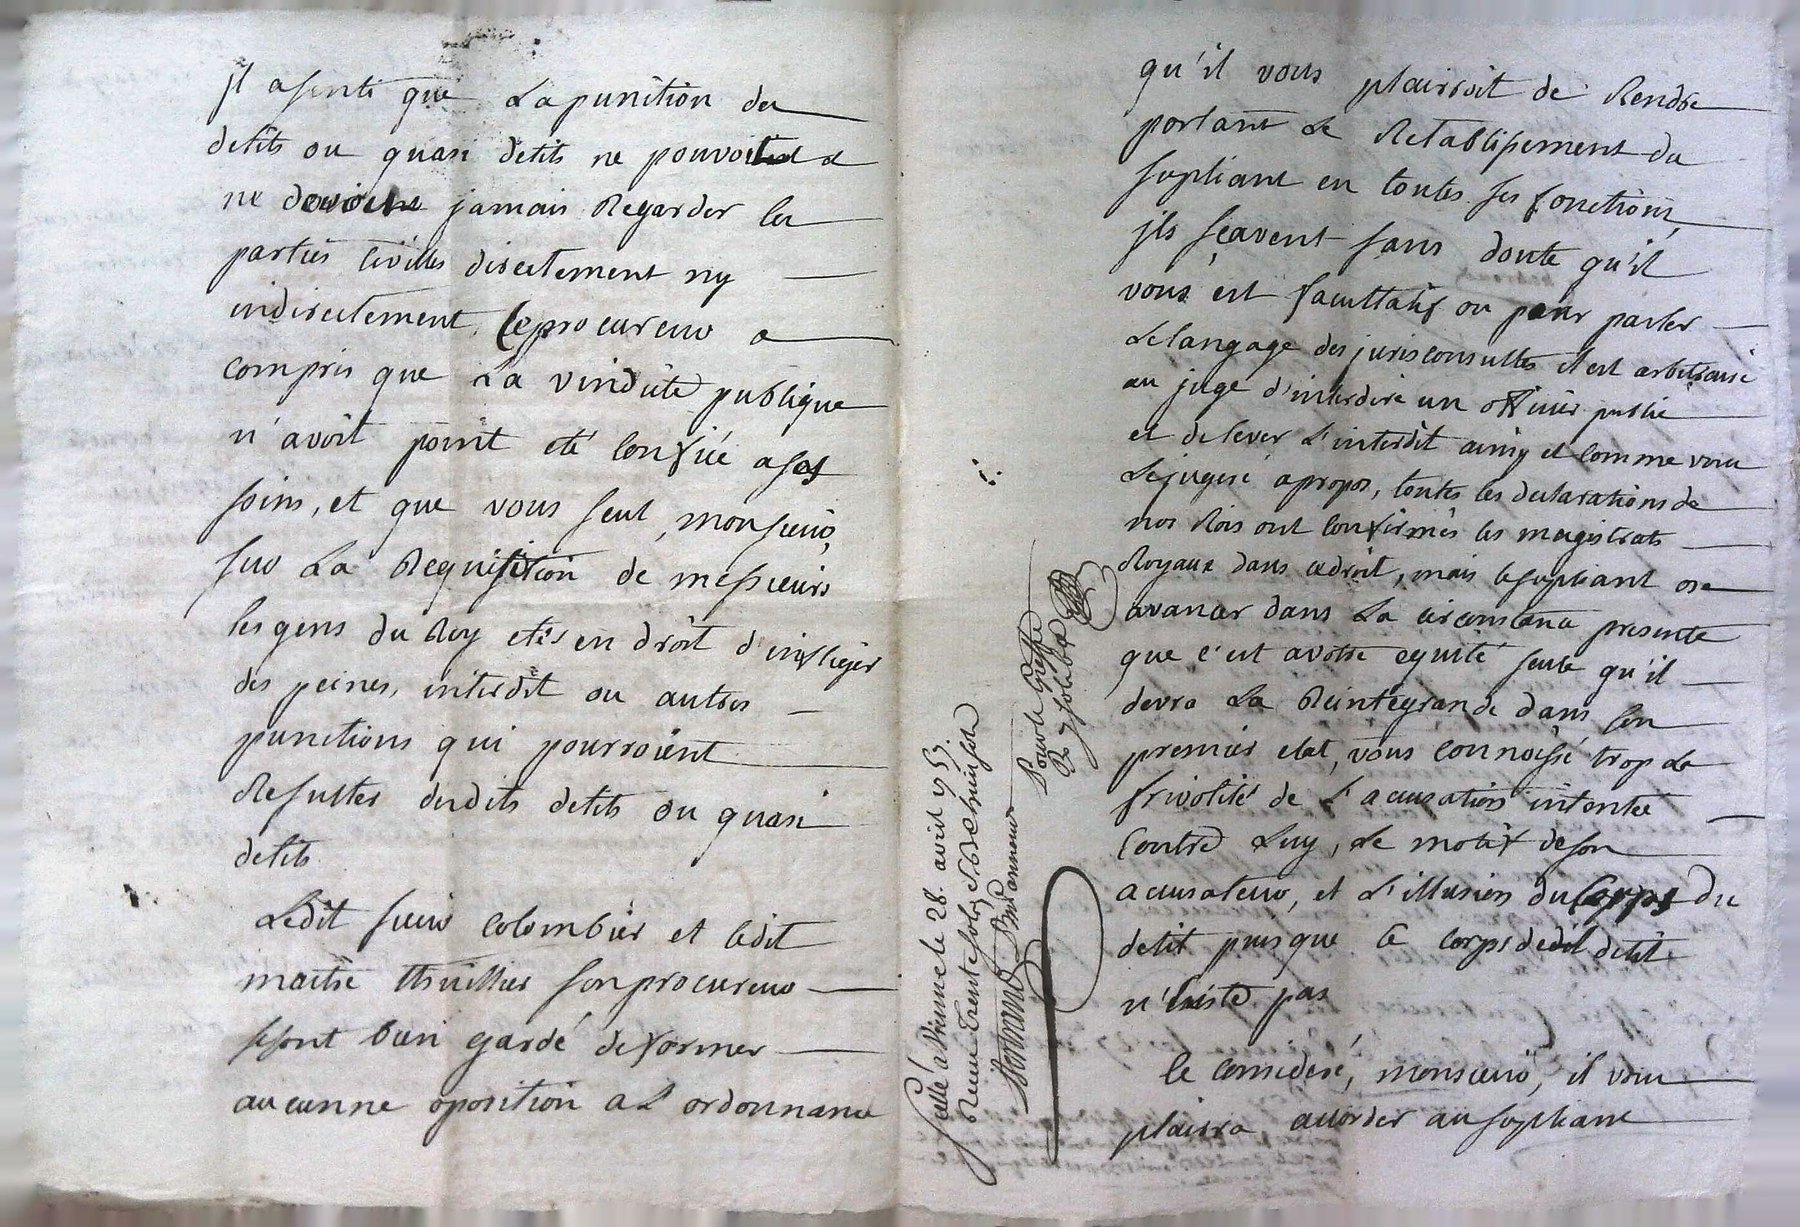 jl a senti que La punition des
delits ou quasi delits ne pouvoit et
ne devoit jamais Regarder les
parties Civilles directement ny
indirectement, le procureur a
compris que La vindicte publique
n'avoit point eté Confiée a ses
soins, et que vous seul, monsieur,
sur La Requisition de messieurs
les gens du Roy etes en droit d'infliger
des peines, interdit ou autres
punitions qui pourroient
Resulter desdits delits ou quasi
delits.
Ledit sieur Colombier et ledit
maitre thuillier son procureur
se sont bien gardé de former
aucunne oposition a L'ordonnance
scellé a Vienne le 28. avril 1757.
Reçu trente sols
Pour le Greffe
qu'il vous plairroit de Rendre
portant Le Retablissement du
supliant en toutes ses fonctions,
jls sçavent sans doute qu'il
vous est facultatif ou pour parler
Le langage des jurisconsultes il est arbitraire
au juge d'interdire un officier public
et de lever L'interdit ainsy et comme vous
Le jugeré apropos, toutes les declarations de
nos Rois ont Confirmés les magistrats
Royaux dans ce droit, mais le supliant ose
avancer dans La circonstance presente
que c'est a votre equité seule qu'il
devra La Reintegrande dans son
premier etat, vous connoissé trop La
frivolité de L'acusation intentée
Contre Luy, Le motif de son
acusateur, et L'illusion du Corps du
delit puis que le corps dudit delit
n'existe pas
Ce consideré, monsieur, il vous
plairra accorder au supliant